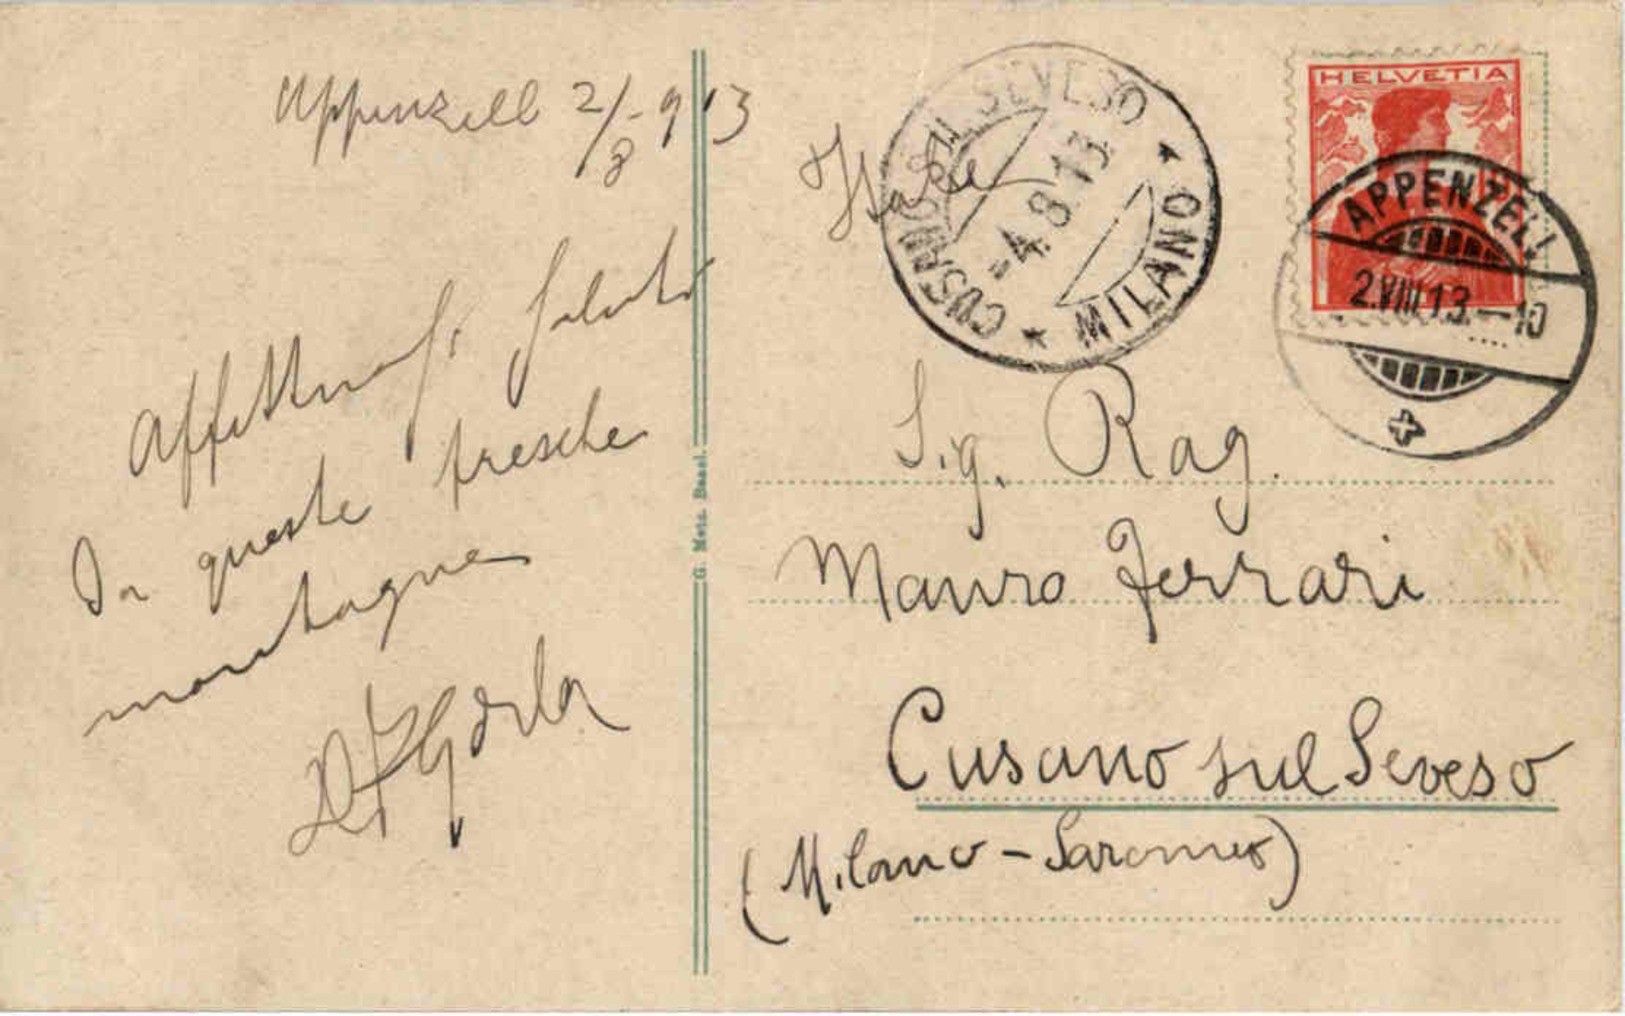 Appenzell 2/8-913
Affettuosi saluti
Da queste fresche
montagne
Gorla
G. Metz, Basel.
Italie
CUSANO SUL SEVESO
-4.8.13
* MILANO *
HELVETIA
APPENZELL
2.VIII.13.-10
Sig. Rag.
Mauro Ferrari
Cusano sul Seveso
(Milano - Saronno)